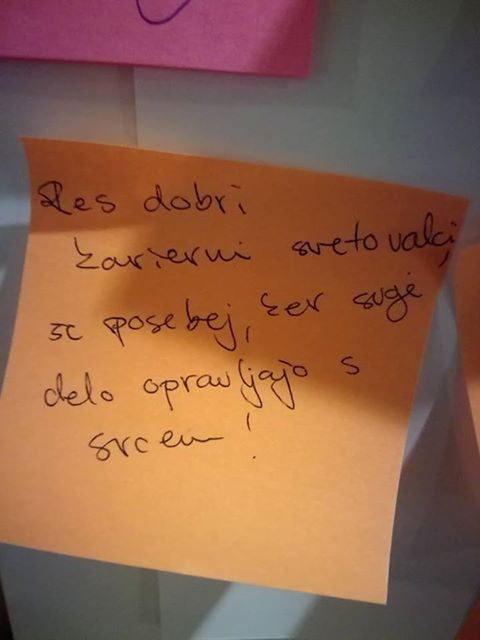 Res dobri
karierni svetovalci,
še posebej, ker svoje
delo opravljajo s
srcem!